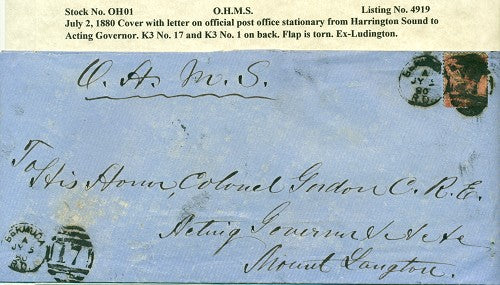 Stock No. OH01 O.H.M.S. Listing No. 4919
July 2, 1880 Cover with letter on official post office stationary from Harrington Sound to
Acting Governor. K3 No. 17 and K3 No. 1 on back. Flap is torn. Ex-Ludington.
O. H. M. S.
A
JY
80
To
His Honor, Colonel Gordon C.R.E.
Acting Governor &c &c &c
Mount Langton.
BERMUDA
A
JY
80
17